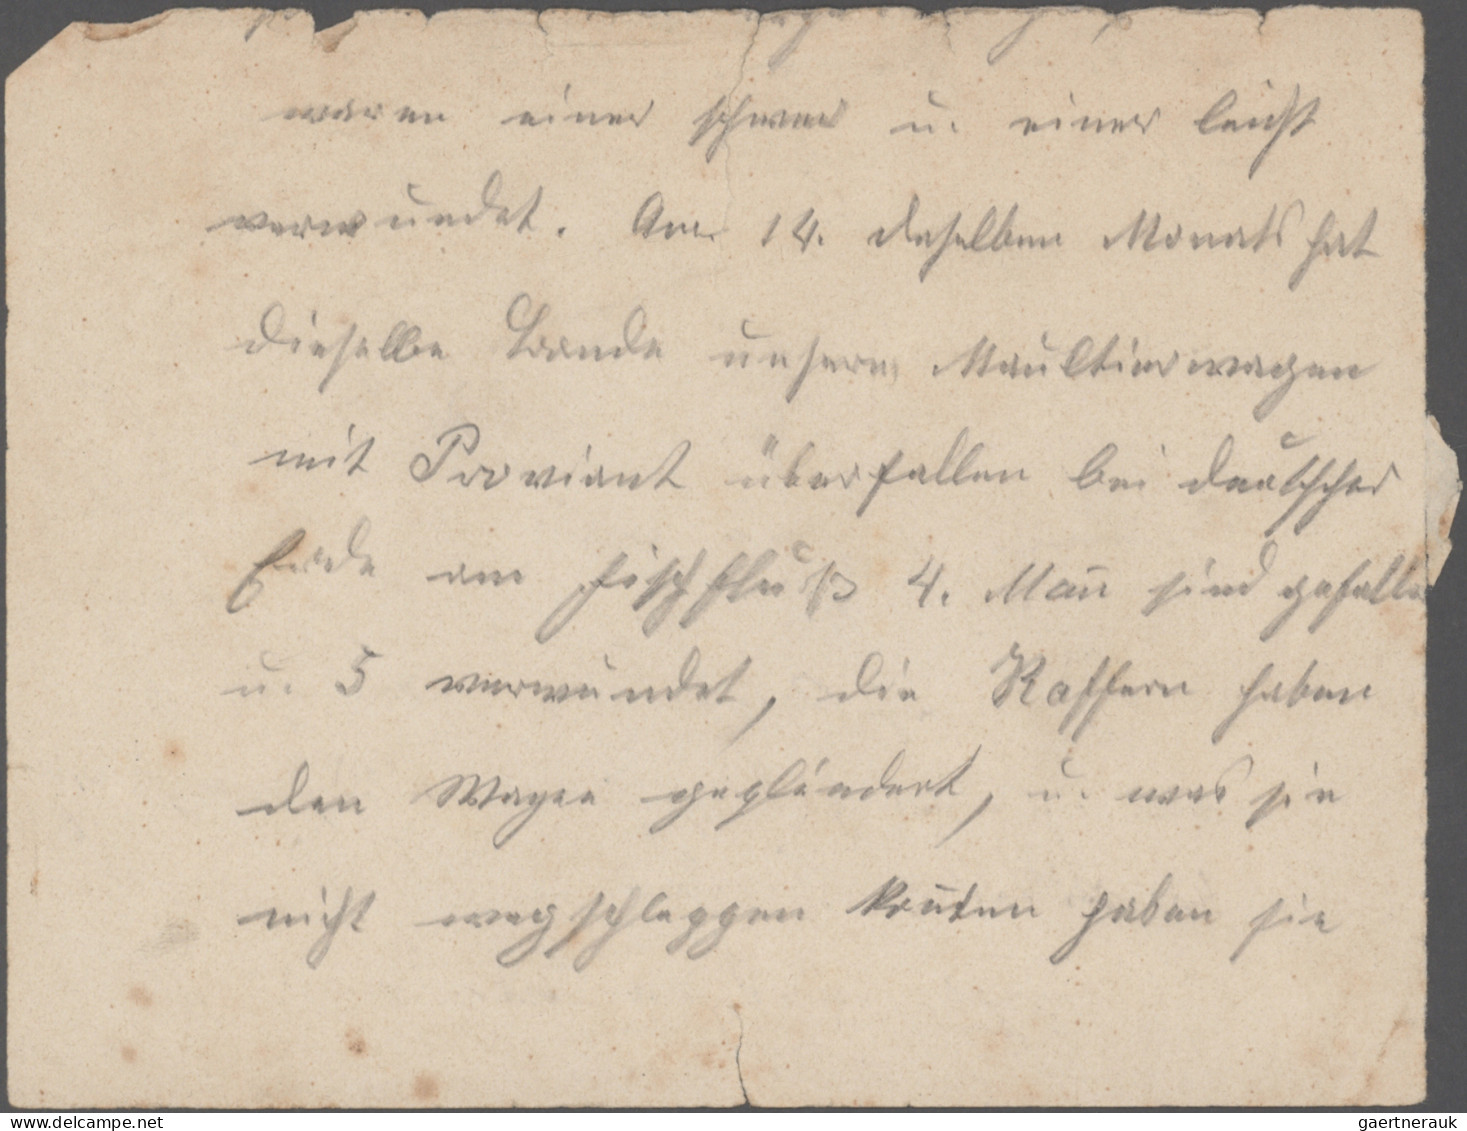 waren einer schwer u. einer leicht
verwundet. Am 14. deselben Monats hat
dieselbe Bande unsern Maultierwagen
mit Proviant überfallen bei deutscher
Erde am Fischfluß 4. Man̄ sind gefallen
u. 5 verwundet, die Kaffern haben
den Wagen geplündert, u. was sie
nicht wegschleppen konten haben sie
www.delcampe.net
gaertnerauk